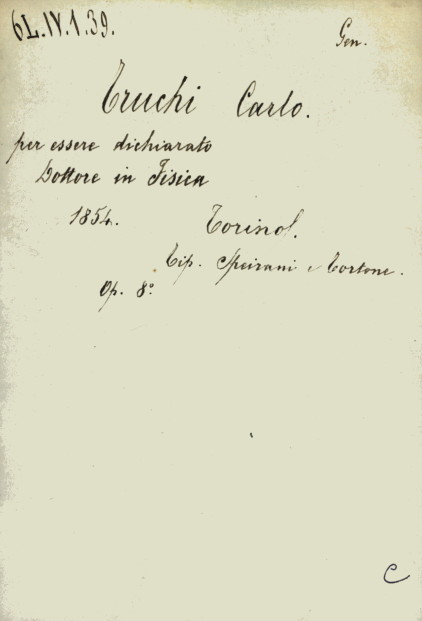 6L.IV.1.39.
Gen.
Truchi Carlo.
per essere dichiarato
Dottore in Fisica
1854. Torino.
Tip. Speirani e Tortone.
Op. 8°
C